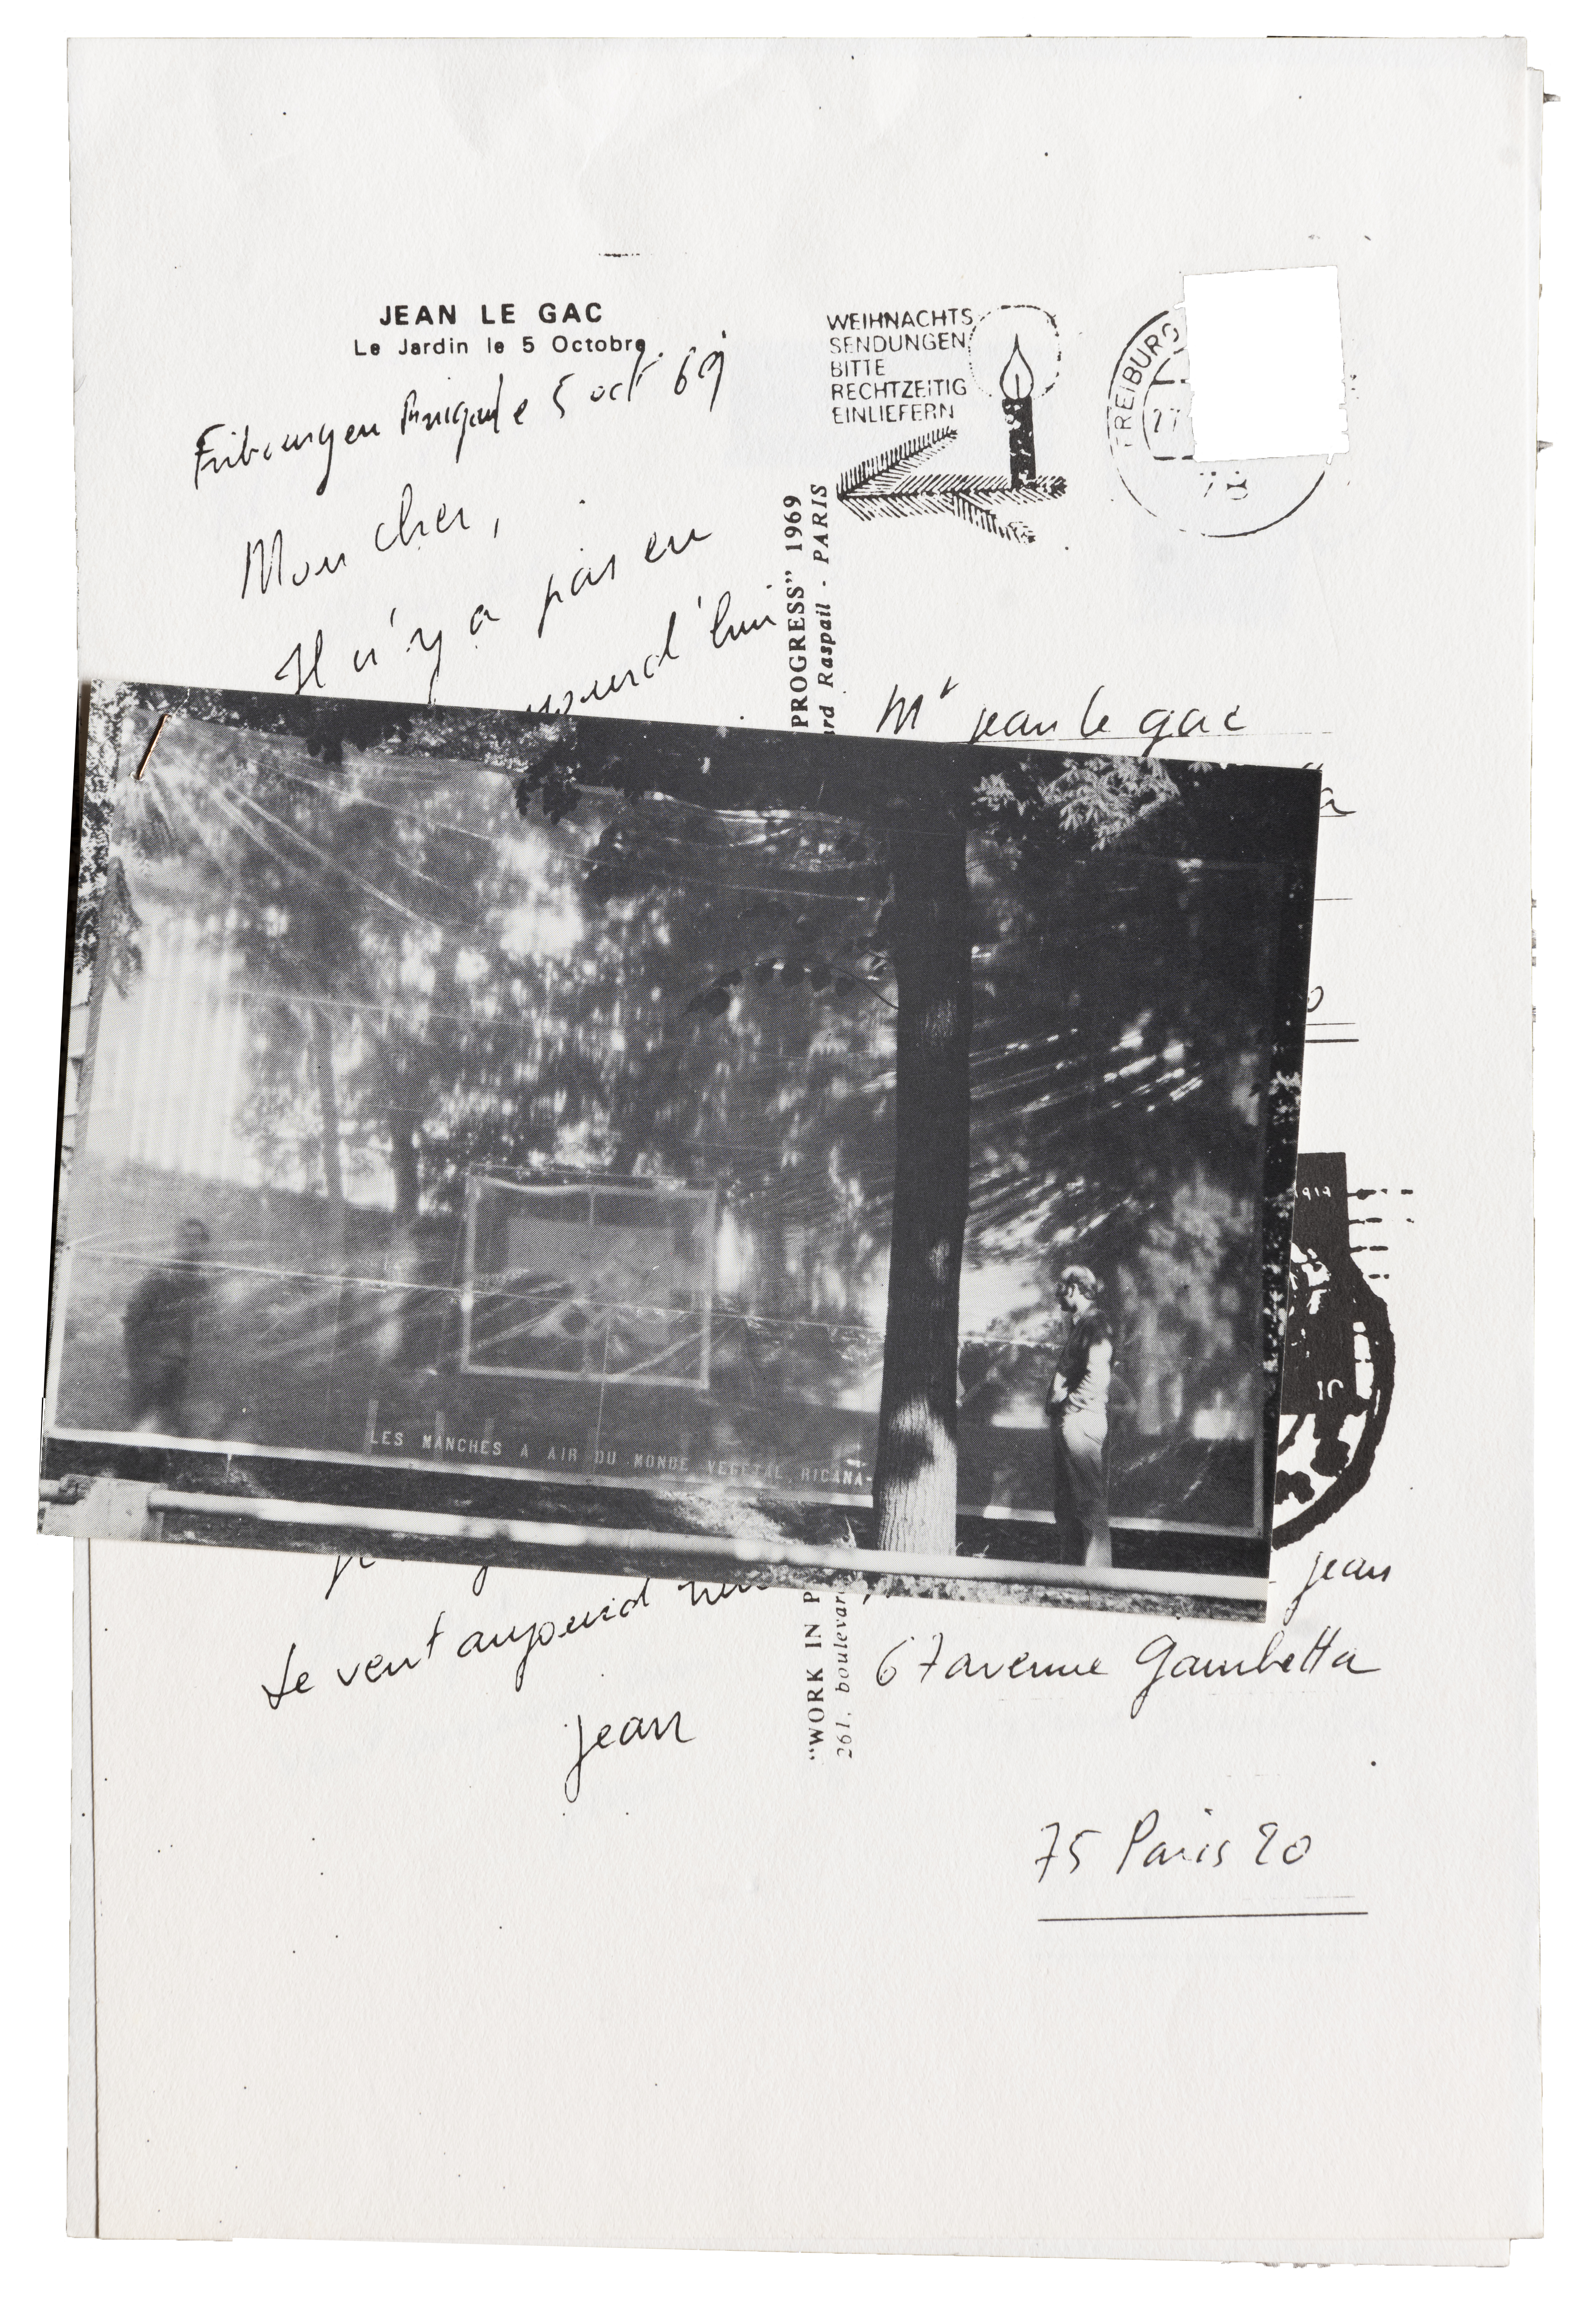 JEAN LE GAC
Le Jardin le 5 Octobre
5 oct 69
Mon cher,
Il n'y a pas eu
Le vent aujourd
jean
WEIHNACHTS
SENDUNGEN
BITTE
RECHTZEITIG
EINLIEFERN
FREIBURG
78
PROGRESS" 1969
Raspail - PARIS
"WORK IN P
261, boulevard
Mr jean le gac
LES MANCHES A AIR DU MONDE VEGETAL RICANA-
jean
67 avenue Gambetta
75 Paris 20